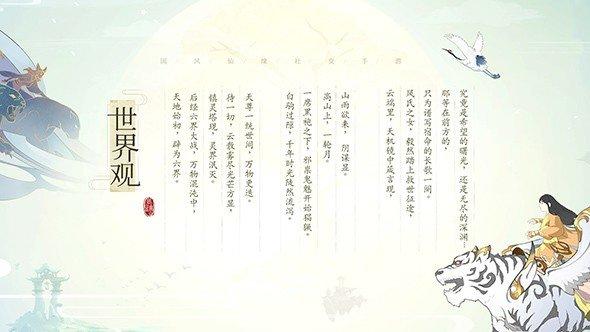 国风仙缘社交手游
世界观
天地始初，辟为六界。
后经六界大战，万物混沌中，
镇灵塔现，灵界泯灭。
待一切，云散雾尽光芒方显，
天尊一统世间，万物更迭。
白驹过隙，千年时光陡然流泻。
一席黑袍之下，邪祟鬼魅开始猖獗。
高山上，一轮月。
山雨欲来，阴谋显。
云端里，天机镜中箴言现，
风氏之女，毅然踏上救世征途，
只为谱写宿命的长歌一阕。
那等在前方的，
究竟是希望的曙光，还是无尽的深渊…